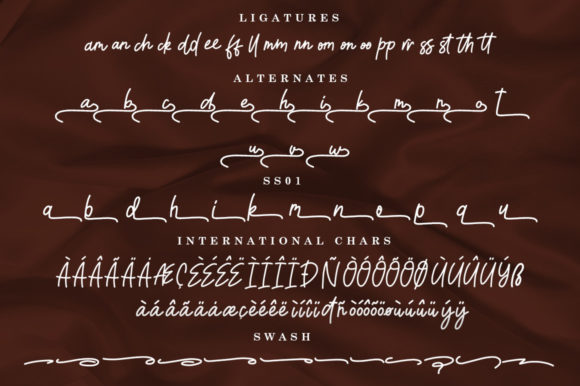 LIGATURES
am an ch ck dd ee ff ll mm nn om on oo pp rr ss st th tt
ALTERNATES
a b c d e h i k m n o t
u v w
SS01
a b d h i k m n o p q u
INTERNATIONAL CHARS
ÀÁÂÃÄÅÆÇÈÉÊËÌÍÎÏÐÑÒÓÔÕÖØÙÚÛÜÝß
àáâãäåæçèéêëìíîïđñòóôõöøùúûüýÿ
SWASH